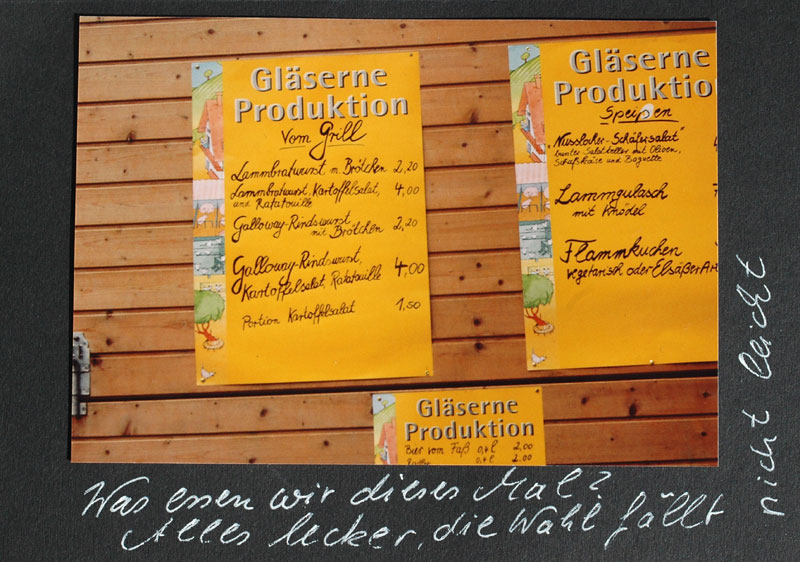 Gläserne
Produktion
Vom Grill
Lammbratwurst m. Brötchen 2,20
Lammbratwurst, Kartoffelsalat, 4,00
und Ratatouille
Galloway-Rindswurst
mit Brötchen 2,20
Galloway-Rindswurst,
Kartoffelsalat, Ratatouille 4,00
Portion Kartoffelsalat 1,50
Gläserne
Produktio
Speißen
"Nusslocher-Schäfersalat"
bunter Salatteller mit Oliven,
Schafskäse und Baguette
Lammgulasch
mit Knödel
Flammkuchen
vegetarisch oder Elsäßer Art
Gläserne
Produktion
Bier vom Faß 0,4l 2,00
0,4l 2,00
Was essen wir dieses Mal?
Alles lecker, die Wahl fällt
nicht leicht